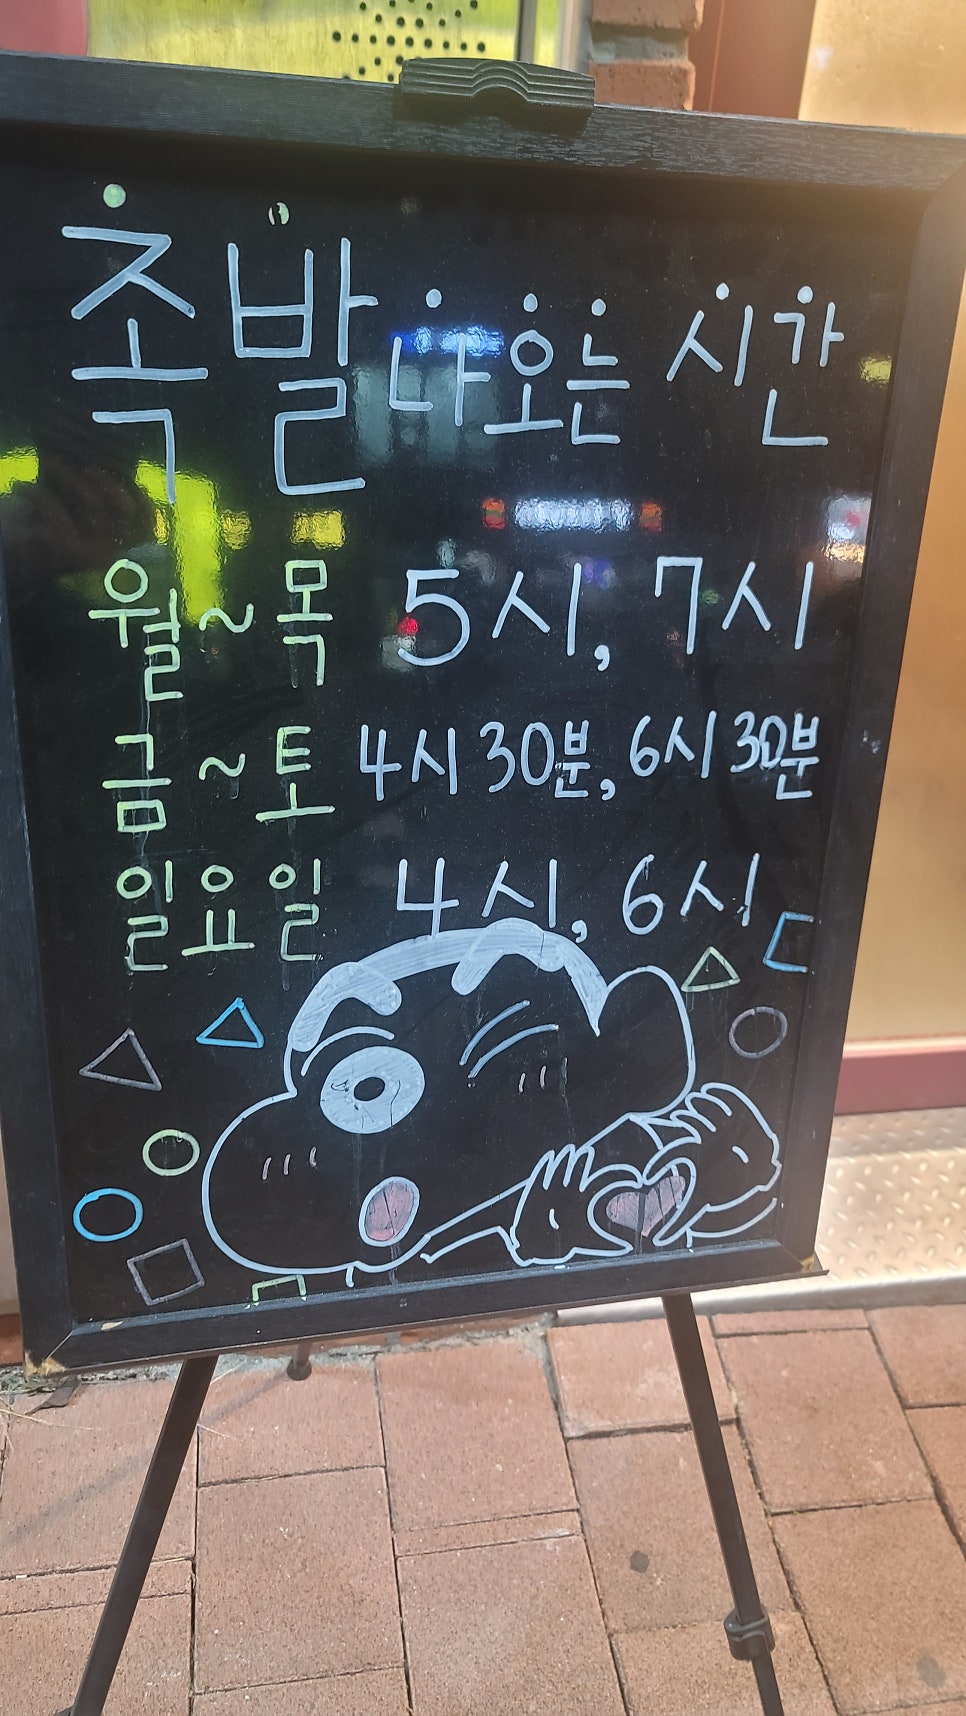 족발 나오는 시간
월~목 5시, 7시
금~토 4시 30분, 6시 30분
일요일 4시, 6시